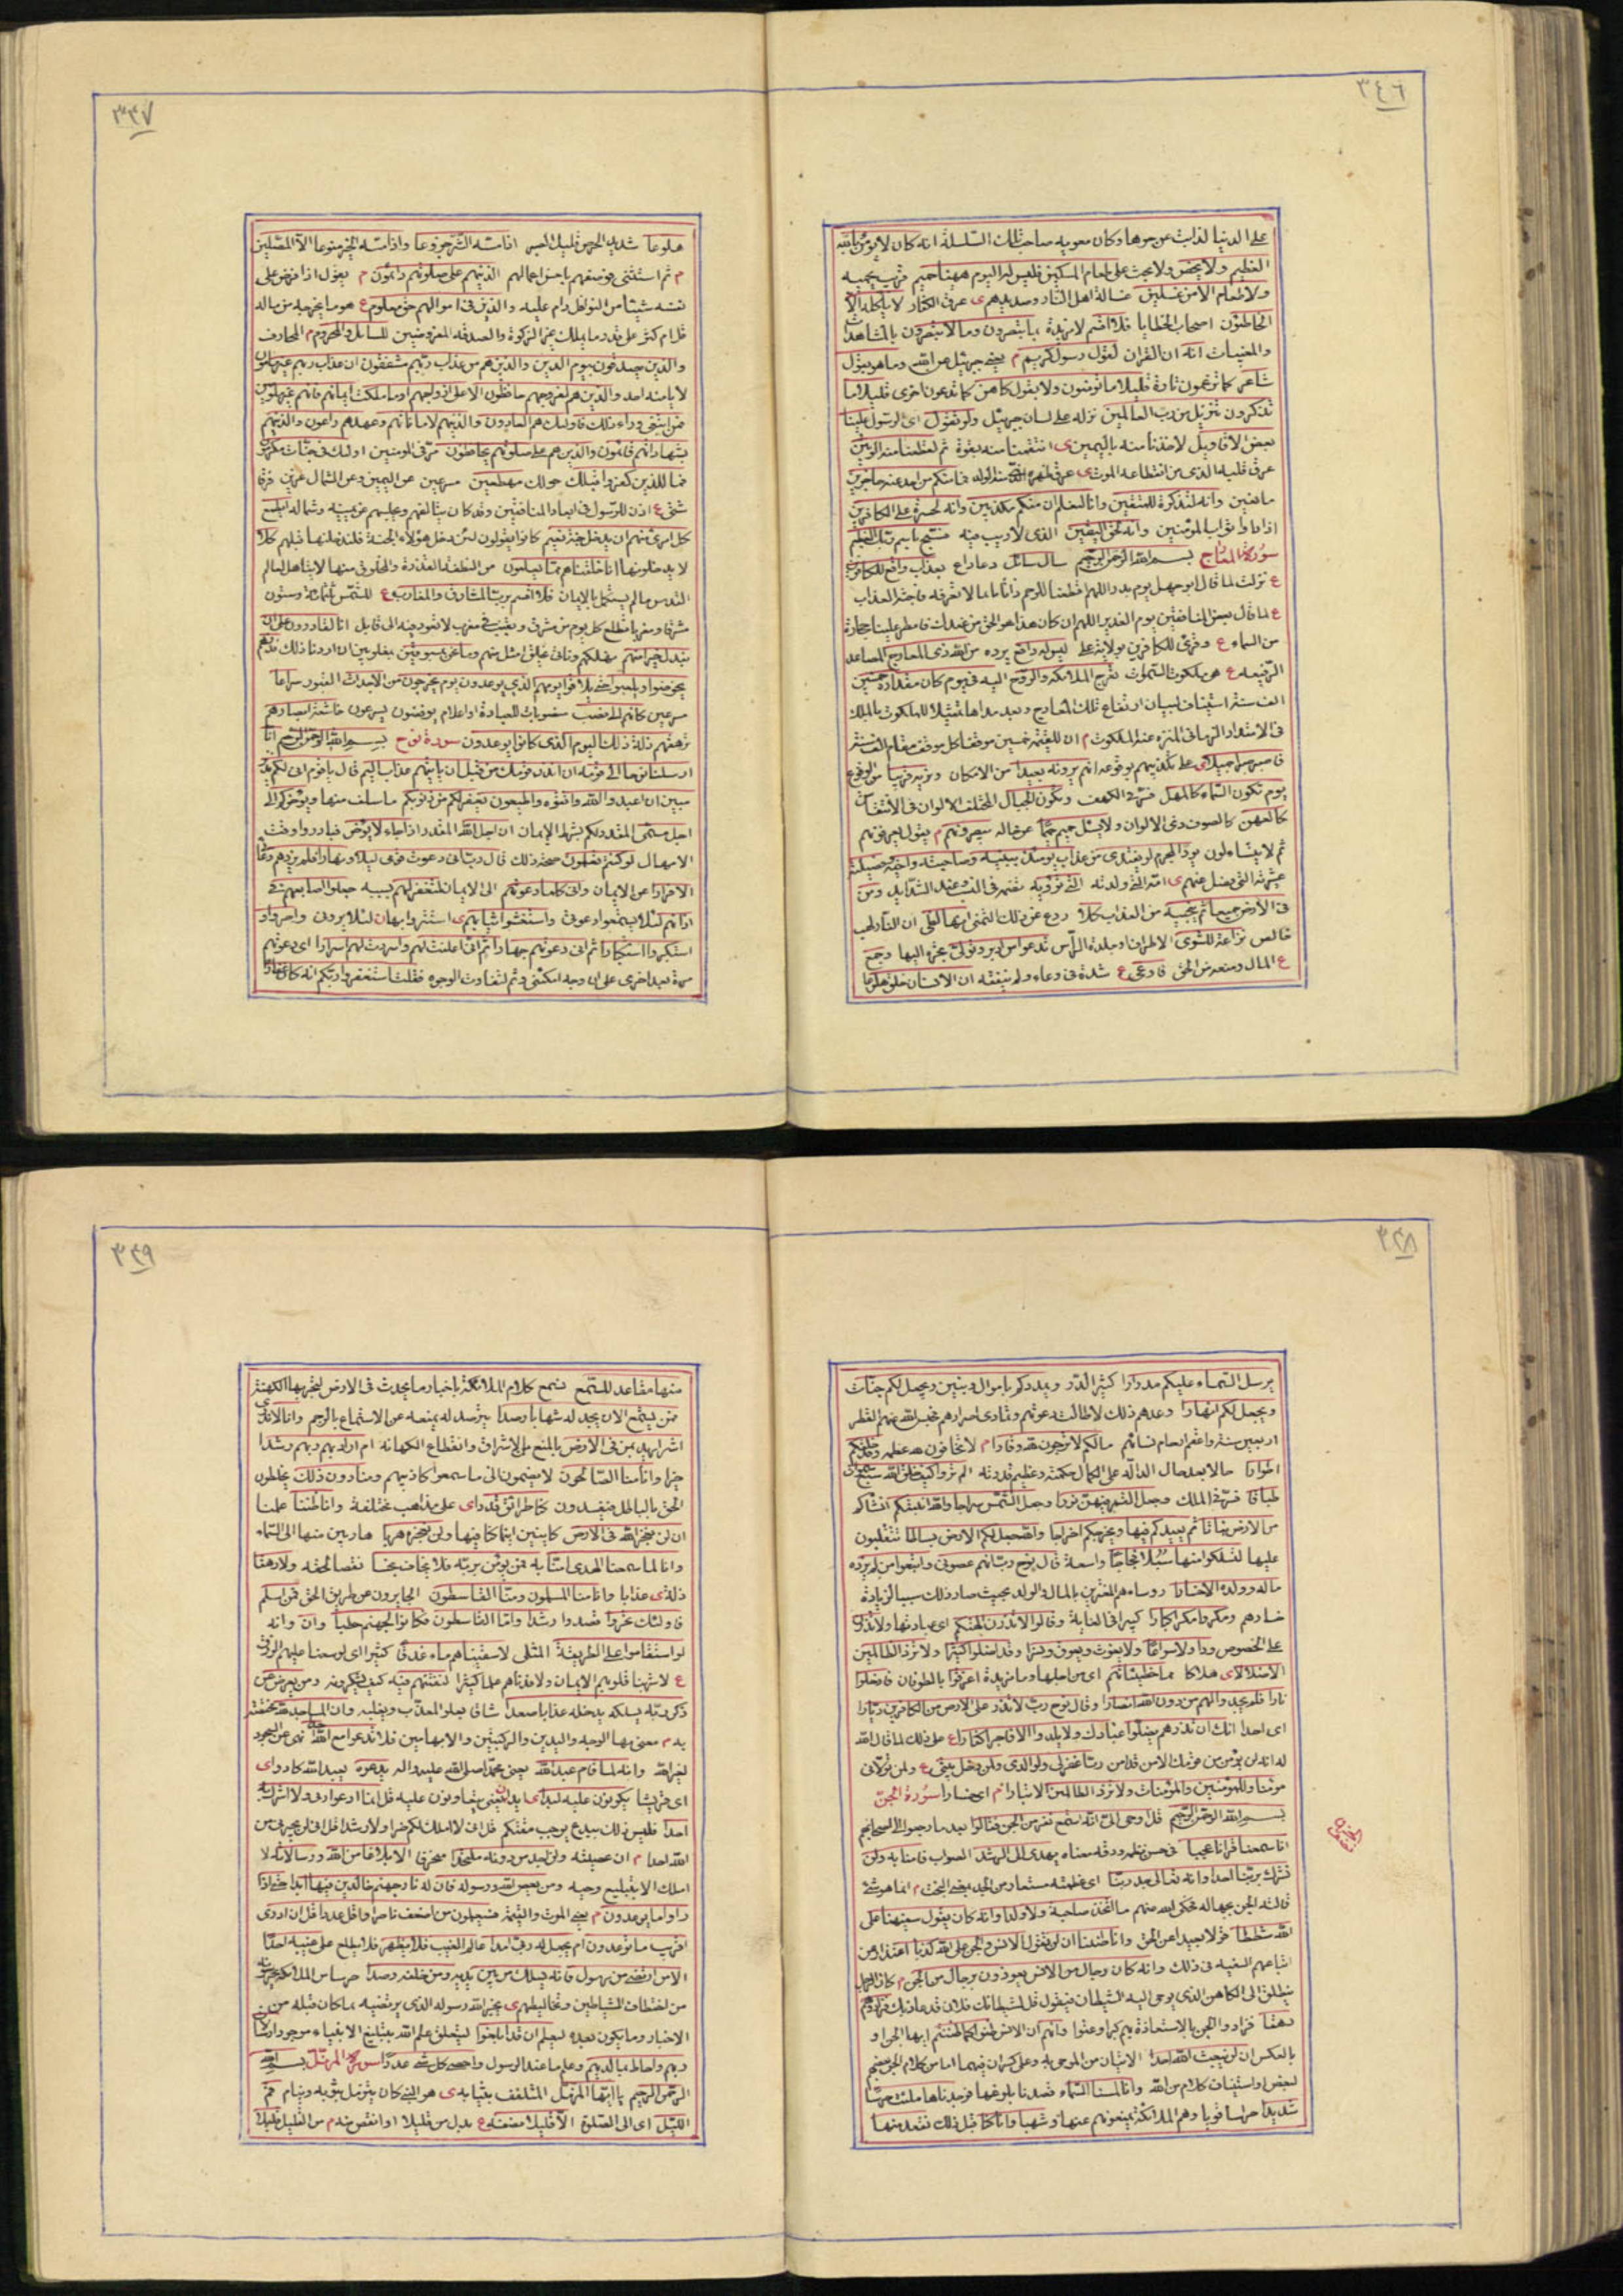 ٣٤٦
على الدنيا لذابت عن حرها وكان معويه صاحب تلك السلسلة انه كان لا يؤمن بالله
العظيم ولا يحض ولا يحث على طعام المسكين فليس له اليوم ههنا حميم قريب يحميه
ولا طعام الا من غسلين غسالة اهل النار وصديدهم ى عرق الكفار لا يأكله الا
الخاطئون اصحاب الخطايا فلا اقسم لا مزيدة بما تبصرون وما لا تبصرون بالمشاهدات
والمغيبات انه ان القران لقول رسول كريم م يعنى جبرئيل عن الله وما هو بقول
شاعر كما تزعمون تارة قليلا ما تؤمنون ولا بقول كاهن كما تدعون اخرى قليلا ما
تذكرون تنزيل من رب العالمين نزله على لسان جبرئيل ولو تقول اى الرسول علينا
بعض الاقاويل لاخذنا منه باليمين ى انتقمنا منه بقوة ثم لقطعنا منه الوتين
عرق قلبه الذى من انقطاعه الموت ى عرق الظهر منه الولد فما منكم من احد عنه حاجزين
مانعين وانه لتذكرة للمتقين وانا لنعلم ان منكم مكذبين وانه لحسرة على الكافرين
اذا راوا ثواب المؤمنين وانه لحق اليقين الذى لا ريب فيه فسبح باسم ربك العظيم
سورة المعارج بسم الله الرحمن الرحيم سال سائل دعا داع بعذاب واقع للكافرين
ع نزلت لما قال ابو جهل يوم بدر اللهم اقطعنا للرحم واتانا بما لا نعرفه فاجئه العذاب
ع لما قال بعض المنافقين يوم الغدير اللهم ان كان هذا هو الحق من عندك فامطر علينا حجارة
من السماء ع وقرئ للكافرين بولاية على ليس له دافع يرده من الله ذى المعارج المصاعد
الرفيعه ع هى ملكوت السموات تعرج الملائكة والروح اليه فى يوم كان مقداره خمسين
الف سنة استيناف لبيان ارتفاع تلك المعارج وبعد مداها تمثيلا للملكوت بالملك
فى الامتداد الزمانى المنزه عنه الملكوت م ان للقيمة خمسين موقفا كل موقف مقام الف سنة
فاصبر صبرا جميلا على تكذيبهم بوقوعه انهم يرونه بعيدا من الامكان ونريه قريبا من الوقوع
يوم تكون السماء كالمهل فسر فى الكهف وتكون الجبال المختلف الالوان فى الانتفاش
كالعهن كالصوف ذى الالوان ولا يسئل حميم حميما عن حاله يبصرونهم م يقول يعرفونهم
ثم لا يتساءلون يود المجرم لو يفتدى من عذاب يومئذ ببنيه وصاحبته واخيه وفصيلته
عشيرته التى فصل عنهم ى امه التى ولدته التى تؤويه تضمه فى النسب وعند الشدايد ومن
فى الارض جميعا ثم ينجيه من العذاب كلا ردع عن ذلك التمنى انها لظى ان النار لهب
خالص نزاعة للشوى الاطراف او جلدة الرأس تدعو من ادبر وتولى تجره اليها وجمع
ع المال ومنعه من الحق فاوعى ع شدة فى وعاء ولم ينفقه ان الانسان خلق هلوعا
٣٤٧
هلوعا شديد الحرص قليل الصبر اذا مسه الشر جزوعا واذا مسه الخير منوعا الا المصلين
م ثم استثنى فوصفهم باحسن اعمالهم الذين هم على صلوتهم دائمون م يقول اذا فرض على
نفسه شيئا من النوافل دام عليه والذين فى اموالهم حق معلوم ع هو ما يخرجه من ماله
قل ام كثر على قدر ما يملك غير الزكوة والصدقه المفروضين للسائل والمحروم م المحارف
والذين يصدقون بيوم الدين والذين هم من عذاب ربهم مشفقون ان عذاب ربهم غير مامون
لا يامنه احد والذين هم لفروجهم حافظون الا على ازواجهم او ما ملكت ايمانهم فانهم غير ملومين
فمن ابتغى وراء ذلك فاولئك هم العادون والذين هم لاماناتهم وعهدهم راعون والذين هم
بشهاداتهم قائمون والذين هم على صلوتهم يحافظون مر فى المؤمنين اولئك فى جنات مكرمون
فما للذين كفروا قبلك حولك مهطعين مسرعين عن اليمين وعن الشمال عزين فرقا
شتى ع اذن للرسول فى ابعاد المنافقين وقد كان يتالفهم ويجلسهم عن يمينه وشماله ايطمع
كل امرئ منهم ان يدخل جنة نعيم كانوا يقولون لئن دخل هؤلاء الجنة فلندخلنها قبلهم كلا
لا يدخلونها انا خلقناهم مما يعلمون من النطفة القذرة والمخلوق منها لا يتاهل لعالم
القدس ما لم يستكمل بالايمان فلا اقسم برب المشارق والمغارب ع للشمس ثلثمائة وستون
مشرقا ومغربا تطلع كل يوم من مشرق وتغيب فى مغرب لا تعود فيه الى قابل انا لقادرون على ان
نبدل خيرا منهم نهلكهم وناتى بخلق امثل منهم وما نحن بمسبوقين بمغلوبين ان اردنا ذلك فذرهم
يخوضوا ويلعبوا حتى يلاقوا يومهم الذى يوعدون يوم يخرجون من الاجداث القبور سراعا
مسرعين كانهم الى نصب منصوبات للعبادة او اعلام يوفضون يسرعون خاشعة ابصارهم
ترهقهم ذلة ذلك اليوم الذى كانوا يوعدون سورة نوح بسم الله الرحمن الرحيم انا
ارسلنا نوحا الى قومه ان انذر قومك من قبل ان ياتيهم عذاب اليم قال يا قوم انى لكم نذير
مبين ان اعبدوا الله واتقوه واطيعون يغفر لكم من ذنوبكم ما سلف منها ويؤخركم الى
اجل مسمى المقدر لكم بشرط الايمان ان اجل الله المقدر اذا جاء لا يؤخر فبادروا وقت
الامهال لو كنتم تعلمون صحة ذلك قال رب انى دعوت قومى ليلا ونهارا فلم يزدهم دعائى
الا فرارا عن الايمان وانى كلما دعوتهم الى الايمان لتغفر لهم بسببه جعلوا اصابعهم فى
اذانهم لئلا يسمعوا دعوتى واستغشوا ثيابهم ى استتروا بها لئلا يرون واصروا و
استكبروا استكبارا ثم انى دعوتهم جهارا ثم انى اعلنت لهم واسررت لهم اسرارا اى دعوتهم
مرة بعد اخرى على اى وجه امكننى وثم لتفاوت الوجوه فقلت استغفروا ربكم انه كان غفارا
٣٤٨
يرسل السماء عليكم مدرارا كثير الدر ويمددكم باموال وبنين ويجعل لكم جنات
ويجعل لكم انهارا وعدهم ذلك لما طالت دعوتهم وتمادى اصرارهم فحبس الله عنهم القطر
اربعين سنة واعقم ارحام نسائهم ما لكم لا ترجون لله وقارا م لا تخافون لله عظمة وقد خلقكم
اطوارا حالا بعد حال الدالة على كمال حكمته وعظيم قدرته الم تروا كيف خلق الله سبع سموات
طباقا فسر فى الملك وجعل القمر فيهن نورا وجعل الشمس سراجا والله انبتكم انشاكم
من الارض نباتا ثم يعيدكم فيها ويخرجكم اخراجا والله جعل لكم الارض بساطا تتقلبون
عليها لتسلكوا منها سبلا فجاجا واسعة قال نوح رب انهم عصونى واتبعوا من لم يزده
ماله وولده الا خسارا روساءهم المغترين بالمال والولد بحيث صار ذلك سببا لزيادة
خسارهم ومكروا مكرا كبارا كبيرا فى الغاية وقالوا لا تذرن الهتكم اى عبادتها ولا تذرن
على الخصوص ودا ولا سواعا ولا يغوث ويعوق ونسرا وقد اضلوا كثيرا ولا تزد الظالمين
الا ضلالا ى هلاكا مما خطيئاتهم اى من اجلها وما مزيدة اغرقوا بالطوفان فادخلوا
نارا فلم يجدوا لهم من دون الله انصارا وقال نوح رب لا تذر على الارض من الكافرين ديارا
اى احدا انك ان تذرهم يضلوا عبادك ولا يلدوا الا فاجرا كفارا ع علم ذلك لما قال الله
له انه لن يؤمن من قومك الا من قد امن رب اغفر لى ولوالدى ولمن دخل بيتى ع ولمن تولانى
مؤمنا وللمؤمنين والمؤمنات ولا تزد الظالمين الا تبارا م اى خسارا سورة الجن
بسم الله الرحمن الرحيم قل اوحى الى انه استمع نفر من الجن فقالوا بعد ما رجعوا الى اصحابهم
انا سمعنا قرانا عجبا فى حسن نظمه ودقه معناه يهدى الى الرشد الصواب فامنا به ولن
نشرك بربنا احدا وانه تعالى جد ربنا اى عظمته مستعار من الجد بمعنى البخت م انما هو شئ
قالته الجن بجهاله فحكى الله عنهم ما اتخذ صاحبة ولا ولدا وانه كان يقول سفيهنا على
الله شططا قولا بعيدا عن الحق وانا ظننا ان لن تقول الانس والجن على الله كذبا اعتذار من
اتباعهم السفيه فى ذلك وانه كان رجال من الانس يعوذون برجال من الجن م كان الرجل
ينطلق الى الكاهن الذى يوحى اليه الشيطان فيقول قل لشيطانك فلان قد عاذ بك فزادوهم
رهقا فزادوا الجن بالاستعاذة بهم كبرا وعتوا وانهم ان الانس ظنوا كما ظننتم ايها الجن او
بالعكس ان لن يبعث الله احدا الايتان من الموحى به وعلى كسر ان فيهما اما من كلام الجن بعضهم
لبعض او استيناف كلام من الله وانا لمسنا السماء قصدنا بلوغها فوجدناها ملئت حرسا
شديدا حراسا قويا وهم الملائكة يمنعونهم عنها وشهبا وانا كنا قبل ذلك نقعد منها
٣٤٩
منها مقاعد للسمع نسمع كلام الملائكة باخبار ما يحدث فى الارض ليخبر بها الكهنة
فمن يستمع الان يجد له شهابا رصدا يترصد له يمنعه عن الاستماع بالرجم وانا لا ندرى
اشر اريد بمن فى الارض بالمنع من الاستراق وانقطاع الكهانة ام اراد بهم ربهم رشدا
خيرا وانا منا الصالحون لا يضيمون الى ما سمعوا كاذبهم ومنا دون ذلك يخلطون
الحق بالباطل فيفسدون كنا طرائق قددا ى على مذاهب مختلفة وانا ظننا علمنا
ان لن نعجز الله فى الارض كاينين اينما كنا فيها ولن نعجزه هربا هاربين منها الى السماء
وانا لما سمعنا الهدى امنا به فمن يؤمن بربه فلا يخاف بخسا نقصا لحقه ولا رهقا
ذلة ى عذابا وانا منا المسلمون ومنا القاسطون الجايرون عن طريق الحق فمن اسلم
فاولئك تحروا قصدوا رشدا واما القاسطون فكانوا لجهنم حطبا وان وانه
لو استقاموا على الطريقة المثلى لاسقيناهم ماء غدقا كثيرا اى لوسعنا عليهم الرزق
ع لاشربنا قلوبهم الايمان ولافدناهم علما كثيرا لنفتنهم فيه كيف يشكرونه ومن يعرض عن
ذكر ربه يسلكه يدخله عذابا صعدا شاقا يعلو المعذب ويغلبه وان المساجد لله مختصة
به م معنى بها الوجه واليدين والركبتين والابهامين فلا تدعوا مع الله احدا نهى عن السجود
لغير الله وانه لما قام عبد الله يعنى محمدا صلى الله عليه واله يدعوه يعبد الله كادوا ى
اى قريشا يكونون عليه لبدا ى ايدا يعنى يتعاونون عليه قل انما ادعوا ربى ولا اشرك به
احدا فليس ذلك ببدع يوجب مقتكم قل انى لا املك لكم ضرا ولا رشدا قل انى لن يجيرنى من
الله احد م ان عصيته ولن اجد من دونه ملتحدا منحرفا الا بلاغا من الله ورسالاته لا
املك الا تبليغ وحيه ومن يعص الله ورسوله فان له نار جهنم خالدين فيها ابدا حتى اذا
راوا ما يوعدون م يعنى الموت والقيمة فسيعلمون من اضعف ناصرا واقل عددا قل ان ادرى
اقريب ما توعدون ام يجعل له ربى امدا عالم الغيب فلا يظهر فلا يطلع على غيبه احدا
الا من ارتضى من رسول فانه يسلك من بين يديه ومن خلفه رصدا حرسا من الملائكة يحرسونه
من اختطاف الشياطين وتخاليطهم ى يخبر الله رسوله الذى يرتضيه بما كان قبله من
الاخبار وما يكون بعده ليعلم ان قد ابلغوا ليتعلق علم الله بتبليغ الانبياء موجودا رسالات
ربهم واحاط بما لديهم وعلم ما عند الرسول واحصى كل شئ عددا سورة المزمل بسم الله
الرحمن الرحيم يا ايها المزمل المتلفف بثيابه ى هو النبى كان يتزمل بثوبه وينام قم
الليل اى الى الصلوة الا قليلا نصفه ع بدل من قليلا او انقص منه م من القليل قليلا